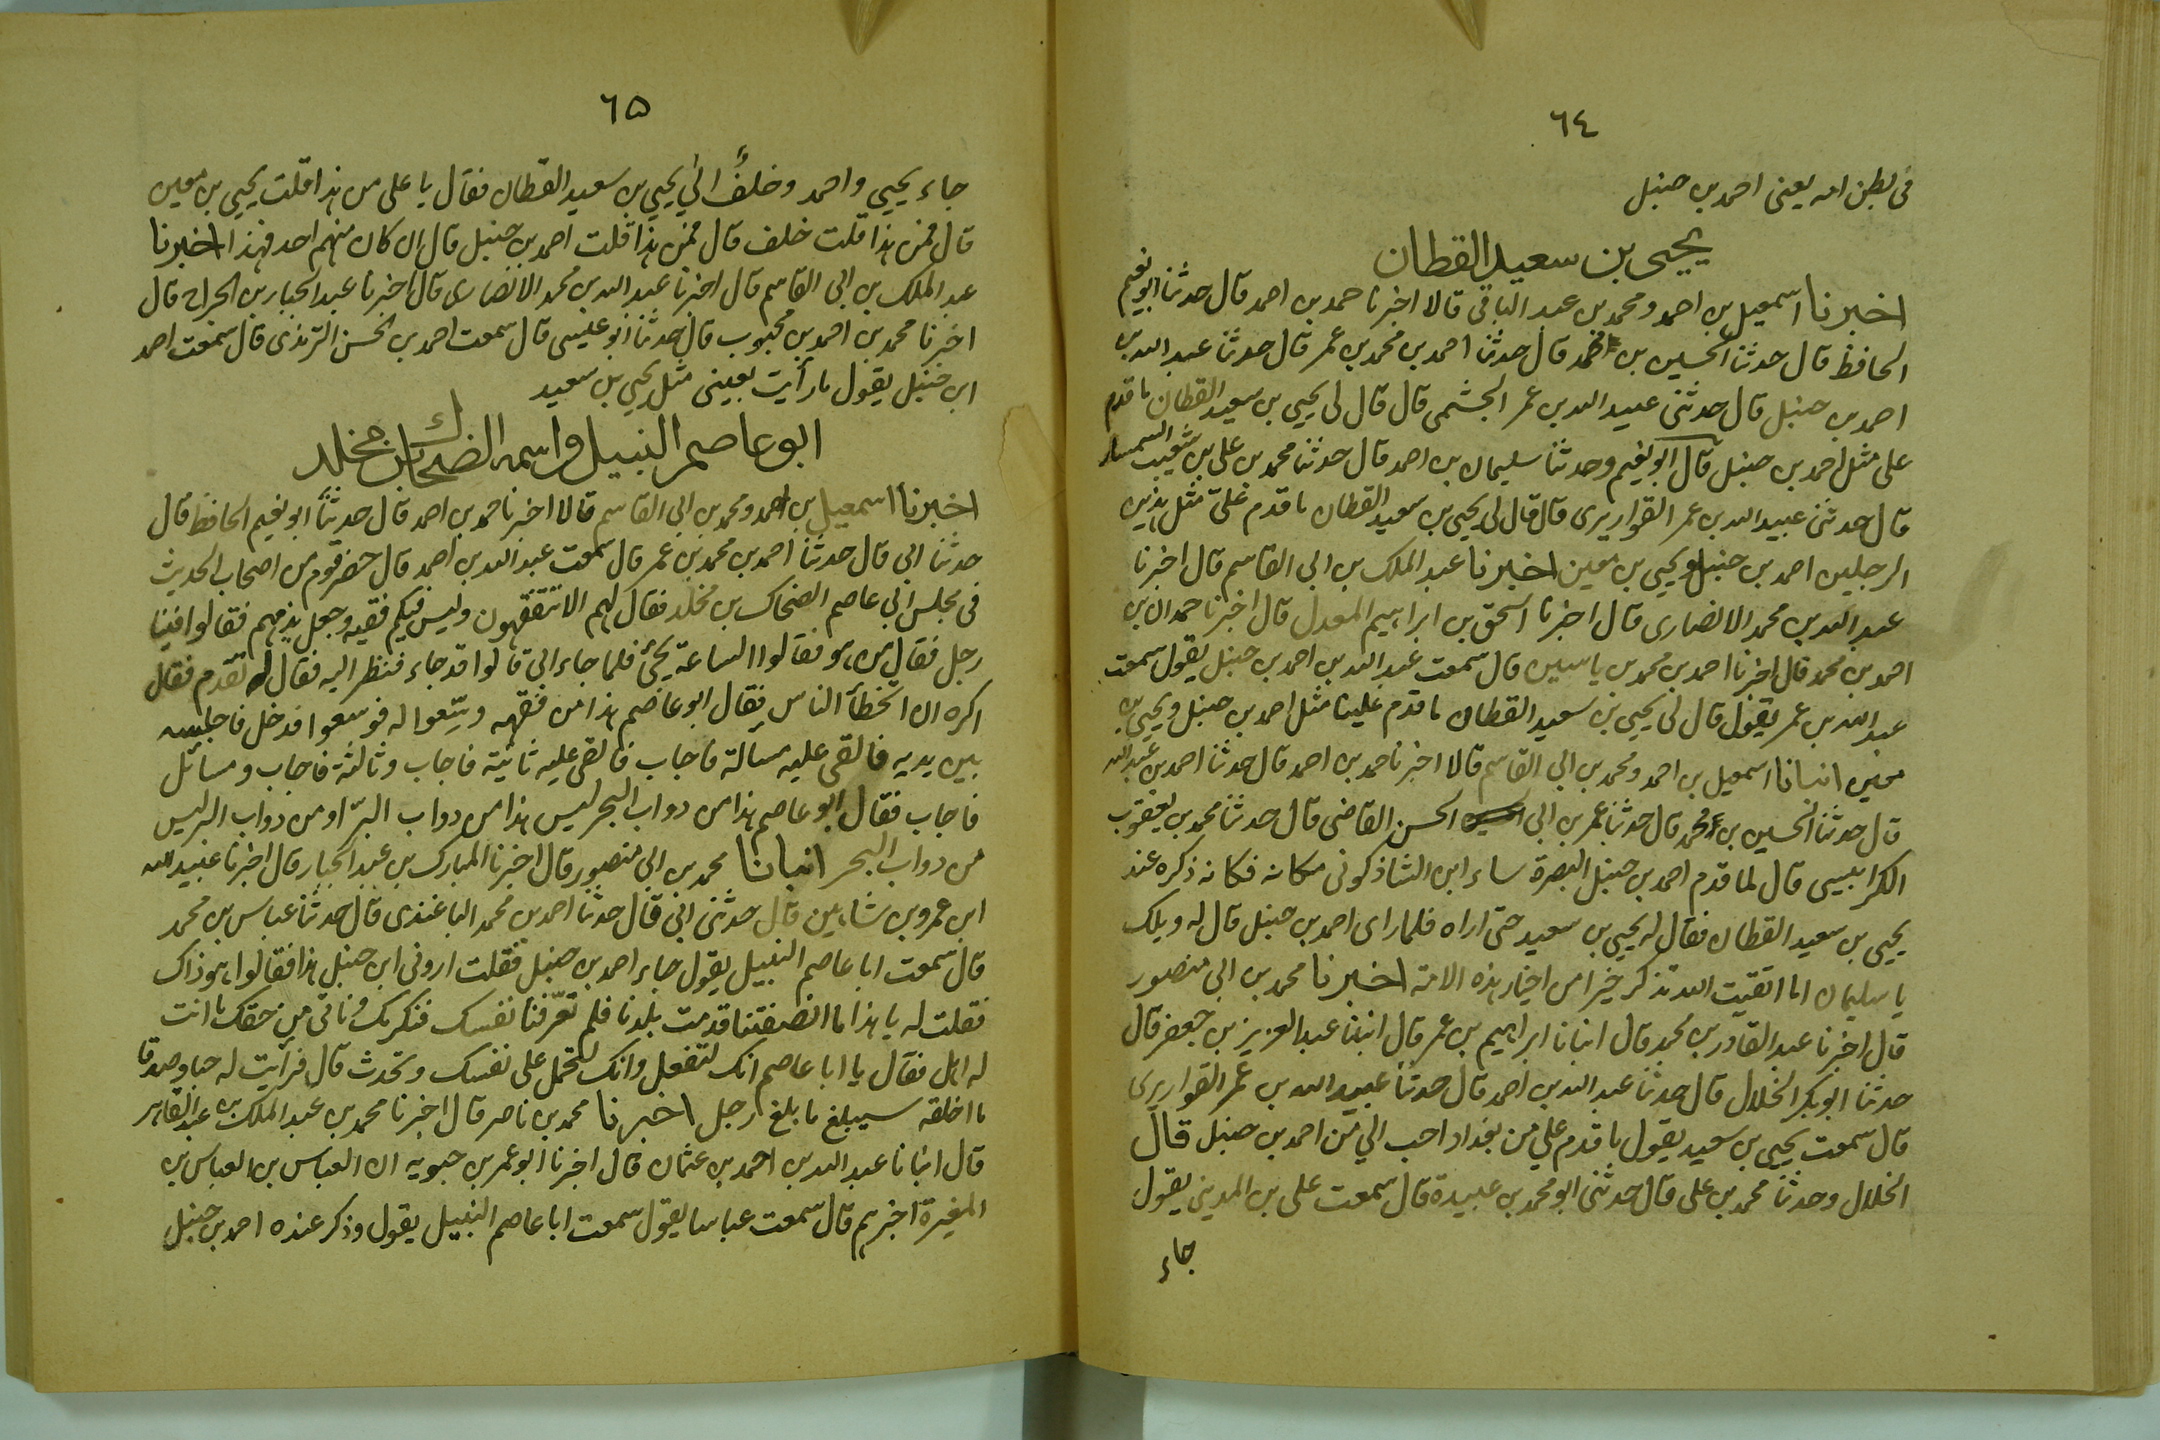 ٦٤
فى بطن امه يعنى احمد بن حنبل
يحيى بن سعيد القطان
اخبرنا اسمعيل بن احمد ومحمد بن عبد الباقى قالا اخبرنا حمد بن احمد قال حدثنا ابو نعيم
الحافظ قال حدثنا الحسين بن محمد قال حدثنا احمد بن محمد بن عمر قال حدثنا عبد الله بن
احمد بن حنبل قال حدثنى عبيد الله بن عمر الجشمى قال قال لى يحيى بن سعيد القطان ما قدم
على مثل احمد بن حنبل قال ابو نعيم وحدثنا سليمان بن احمد قال حدثنا محمد بن على بن شعيب السمسار
قال حدثنى عبيد الله بن عمر القواريرى قال قال لى يحيى بن سعيد القطان ما قدم علىّ مثل هذين
الرجلين احمد بن حنبل ويحيى بن معين اخبرنا عبد الملك بن ابى القاسم قال اخبرنا
عبد الله بن محمد الانصارى قال اخبرنا اسحق بن ابراهيم المعدل قال اخبرنا حمدان بن
احمد بن محمد قال اخبرنا احمد بن محمد بن ياسين قال سمعت عبد الله بن احمد بن حنبل يقول سمعت
عبد الله بن عمر يقول قال لى يحيى بن سعيد القطان ما قدم علينا مثل احمد بن حنبل ويحيى بن
معين انبانا اسمعيل بن احمد ومحمد بن ابى القاسم قالا اخبرنا حمد بن احمد قال حدثنا احمد بن عبد الله
قال حدثنا الحسين بن محمد قال حدثنا عمر بن ابى الحسن القاضى قال حدثنا محمد بن يعقوب
الكرابيسى قال لما قدم احمد بن حنبل البصرة ساء ابن الشاذكونى مكانه فكانه ذكره عند
يحيى بن سعيد القطان فقال له يحيى بن سعيد حتى اراه فلما راى احمد بن حنبل قال له ويلك
يا سليمان اما اتقيت الله تذكر خيرا من اخيار هذه الامة اخبرنا محمد بن ابى منصور
قال اخبرنا عبد القادر بن محمد قال انبانا ابراهيم بن عمر قال انبانا عبد العزيز بن جعفر قال
حدثنا ابو بكر الخلال قال حدثنا عبد الله بن احمد قال حدثنا عبيد الله بن عمر القواريرى
قال سمعت يحيى بن سعيد يقول ما قدم علي من بغداد احب الي من احمد بن حنبل قال
الخلال وحدثنا محمد بن على قال حدثنى ابو محمد بن عبيدة قال سمعت على بن المدينى يقول
جاء
٦٥
جاء يحيى واحمد وخلفٌ الى يحيى بن سعيد القطان فقال يا على من هذا قلت يحيى بن معين
قال فمن هذا قلت خلف قال فمن هذا قلت احمد بن حنبل قال ان كان منهم احد فهذا اخبرنا
عبد الملك بن ابى القاسم قال اخبرنا عبد الله بن محمد الانصارى قال اخبرنا عبد الجبار بن الجراح قال
اخبرنا محمد بن احمد بن محبوب قال حدثنا ابو عيسى قال سمعت احمد بن الحسن الترمذى قال سمعت احمد
ابن حنبل يقول ما رأيت بعينى مثل يحيى بن سعيد
ابو عاصم النبيل واسمه الضحاك بن مخلد
اخبرنا اسمعيل بن احمد ومحمد بن ابى القاسم قالا اخبرنا حمد بن احمد قال حدثنا ابو نعيم الحافظ قال
حدثنا ابى قال حدثنا احمد بن محمد بن عمر قال سمعت عبد الله بن احمد قال حضر قوم من اصحاب الحديث
فى مجلس ابى عاصم الضحاك بن مخلد فقال لهم الا تتفقهون وليس فيكم فقيه وجعل يذمهم فقالوا فينا
رجل فقال من هو فقالوا الساعة يجئ فلما جاء ابى قالوا قد جاء فنظر اليه فقال له تقدم فقال
اكره ان اتخطأ الناس فقال ابو عاصم هذا من فقهه وسّعوا له فوسعوا فدخل فاجلسه
بين يديه فالقى عليه مسالة فاجاب فالقى عليه ثانية فاجاب وثالثة فاجاب ومسائل
فاجاب فقال ابو عاصم هذا من دواب البحر ليس هذا من دواب البرّ او من دواب البر ليس
من دواب البحر انبانا محمد بن ابى منصور قال اخبرنا المبارك بن عبد الجبار قال اخبرنا عبيد الله
ابن عمرو بن شاهين قال حدثنى ابى قال حدثنا احمد بن محمد الباغندى قال حدثنا عباس بن محمد
قال سمعت ابا عاصم النبيل يقول جاء احمد بن حنبل فقلت ارونى ابن حنبل هذا فقالوا هو ذاك
فقلت له يا هذا ما انصفتنا قدمت بلدنا فلم تعرّفنا نفسك فنكرمك وناتى من حقك ما انت
له اهل فقال يا ابا عاصم انك لتفعل وانك لتحمل على نفسك وتحدث قال فرأيت له حيا وصدقا
ما اخلقه سيبلغ ما بلغ رجل اخبرنا محمد بن ناصر قال اخبرنا محمد بن عبد الملك بن عبد القاهر
قال انبانا عبد الله بن احمد بن عثمان قال اخبرنا ابو عمر بن حيويه ان العباس بن العباس بن
المغيرة اخبرهم قال سمعت عباسا يقول سمعت ابا عاصم النبيل يقول وذكر عنده احمد بن حنبل